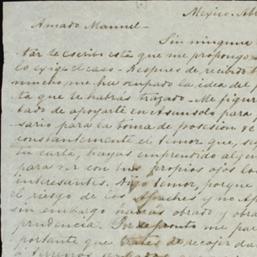 Mexico. Abr
Amado Manuel -
Sin ninguna
tár te escribi esta que me propongo
lo exige el caso - Despues de recibir t
mucho me ha ocupado la idea del p
ta que te habrás trazado - Me figur
tado de apoyarte en Asunsolo para
sario para la toma de posesion de
constantemente el temor que, se
tu carta, hayas emprendido algun
para ver con tus propios ojos lo
interesantes. Digo temor, porque
el riesgo de los Apaches y no Ap
sin embargo habrás obrado y obra
prudencia. Por de pronto me par
portante que trates de recojer da